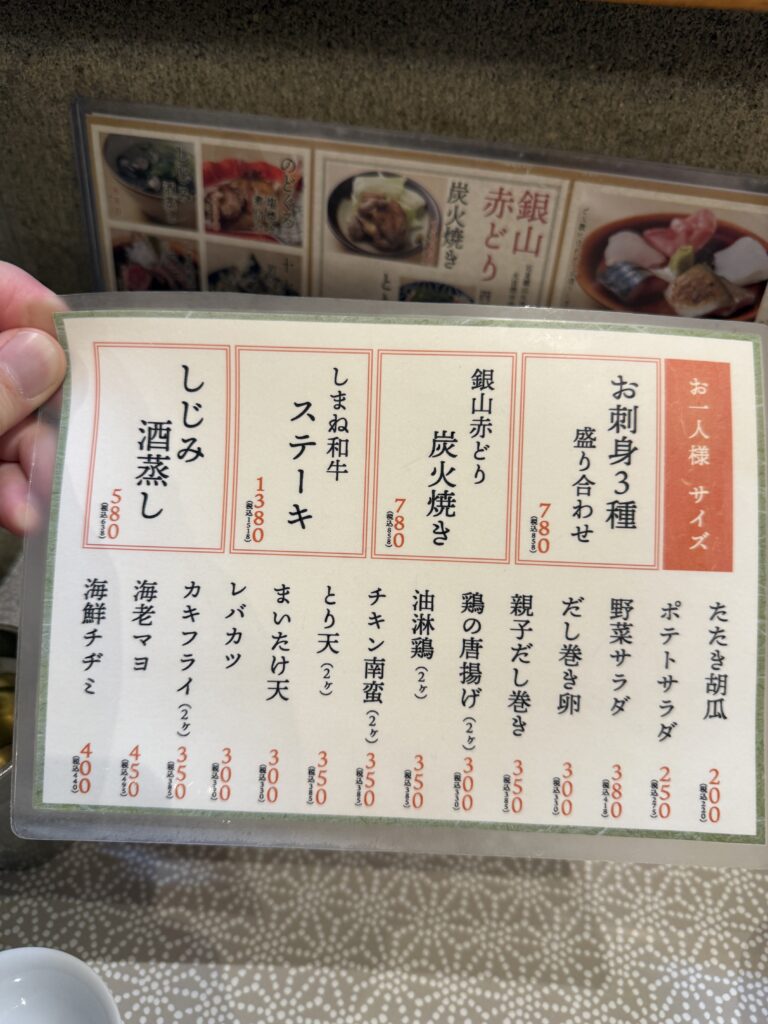 お一人様 サイズ
お刺身3種
盛り合わせ
780
(税込858)
銀山赤どり
炭火焼き
780
(税込858)
しまね和牛
ステーキ
1380
(税込1518)
しじみ
酒蒸し
580
(税込638)
たたき胡瓜 200 (税込220)
ポテトサラダ 250 (税込275)
野菜サラダ 380 (税込418)
だし巻き卵 300 (税込330)
親子だし巻き 350 (税込385)
鶏の唐揚げ(2ヶ) 300 (税込330)
油淋鶏(2ヶ) 350 (税込385)
チキン南蛮(2ヶ) 350 (税込385)
とり天(2ヶ) 350 (税込385)
まいたけ天 300 (税込330)
レバカツ 300 (税込330)
カキフライ(2ヶ) 350 (税込385)
海老マヨ 450 (税込495)
海鮮チヂミ 400 (税込440)
銀山
赤どり
炭火焼き
のどぐろ